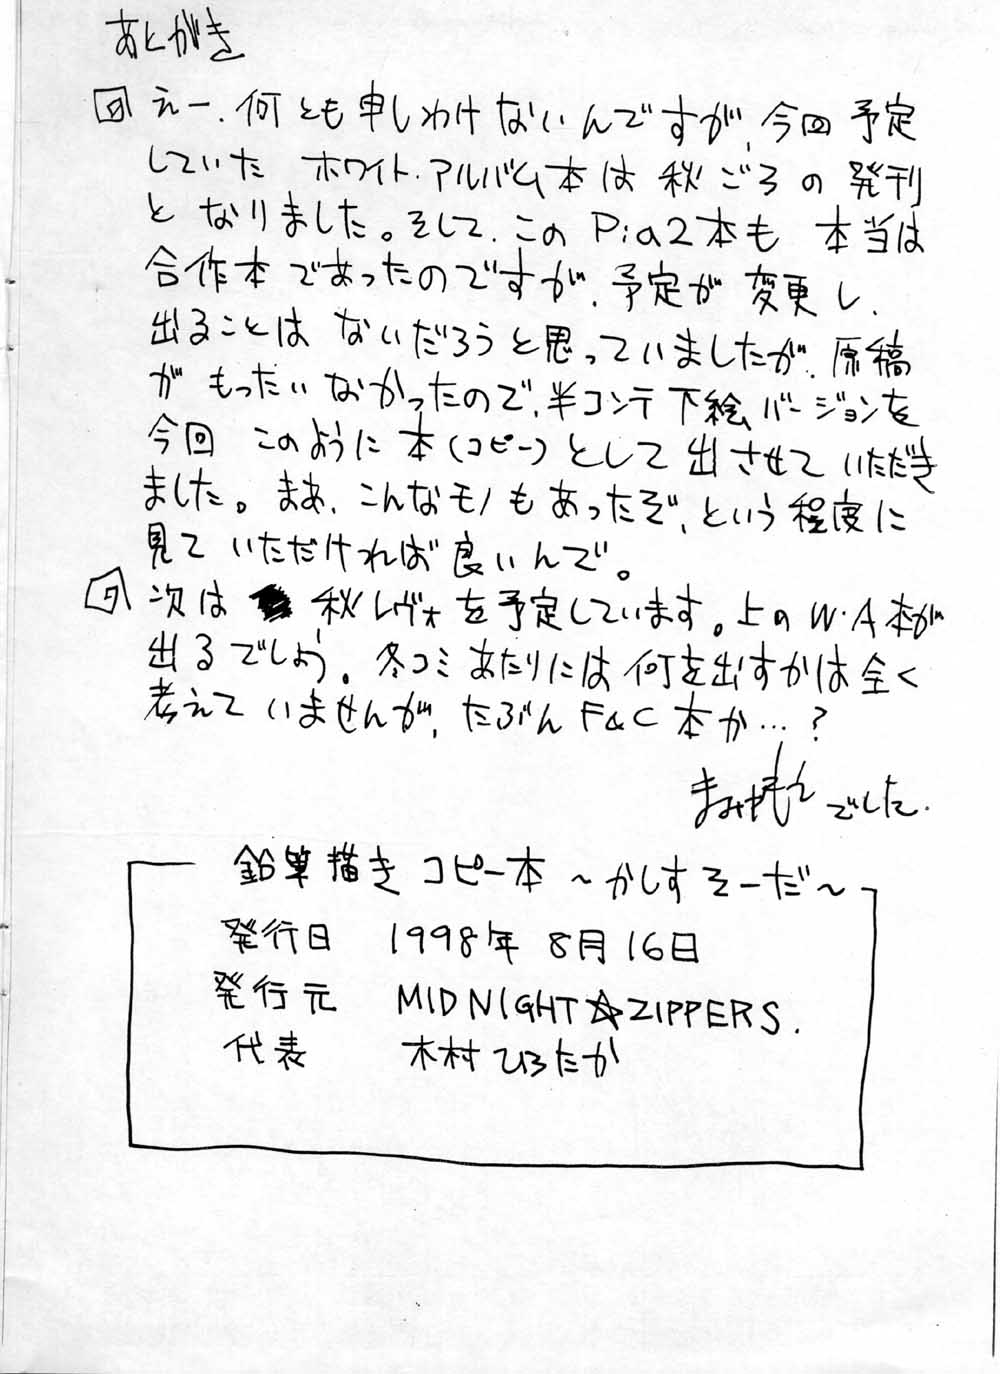 あとがき
えー、何とも申しわけないんですが、今回予定
していた ホワイト・アルバム本は 秋ごろの発刊
となりました。そして、このPia2本も 本当は
合作本であったのですが、予定が変更し、
出ることは ないだろうと思っていましたが、原稿
が もったいなかったので、半コンテ下絵バージョンを
今回 このように本(コピー)として出させていただき
ました。まあ、こんなモノもあったぞ、という程度に
見ていただければ良いんで。
次は 秋レヴォを予定しています。上のW・A本が
出るでしょう。冬コミあたりには何を出すかは全く
考えていませんが、たぶんF&C本か…?
でした。
鉛筆描きコピー本 ～かしすそーだ～
発行日 1998年8月16日
発行元 MIDNIGHT☆ZIPPERS.
代表 木村ひろたか